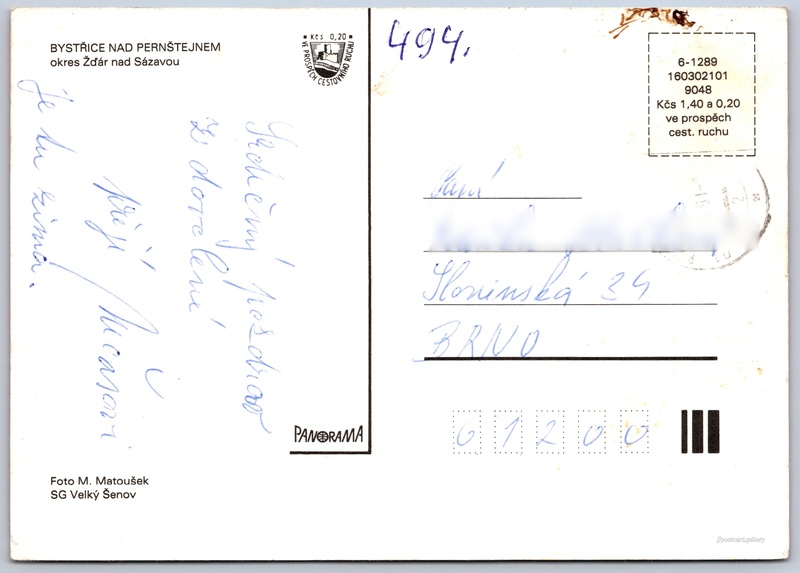 BYSTŘICE NAD PERNŠTEJNEM
okres Žďár nad Sázavou
Kčs 0,20
VE PROSPĚCH CESTOVNÍHO RUCHU
494.
6-1289
160302101
9048
Kčs 1,40 a 0,20
ve prospěch
cest. ruchu
Srdečný pozdrav
z dovolení
přejí
je tu zima.
Paní
Slovinská 29
BRNO
61200
PANORAMA
Foto M. Matoušek
SG Velký Šenov
//postcard.gallery